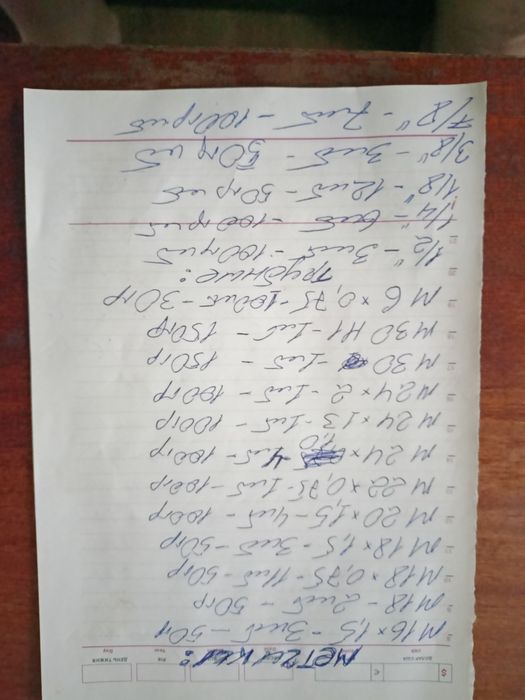 метчики:
М16×1,5 - 3шт - 50гр
М18 - 2шт - 50гр
М18×0,75 - 11шт - 50гр
М18×1,5 - 3шт - 50гр
М20×1,5 - 4шт - 100гр
М22×0,75 - 1шт - 100гр
М24×1,0 - 4шт - 100гр
М24×1,5 - 1шт - 100гр
М24×2 - 1шт - 100гр
М30 - 1шт - 150гр
М30 Н1 - 1шт - 150гр
М6×0,75 - 100шт - 30гр
трубные:
1/2" - 3шт - 100гр шт
1/4" - 6шт - 100гр шт
1/8 - 12шт - 50гр шт
3/8" - 3шт - 50гр шт
7/8" - 7шт - 100гр шт